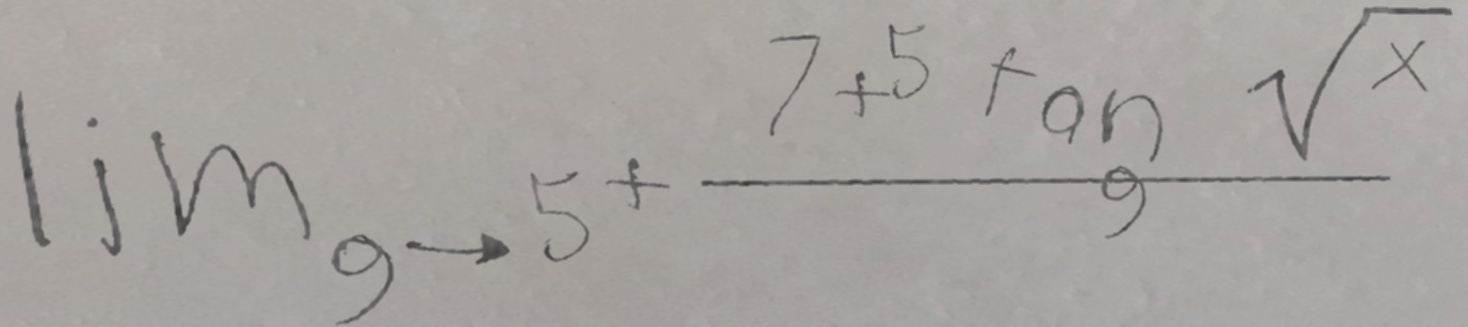 \lim_{g \to 5^+} \frac{7 + 5 \tan \sqrt{x}}{g}